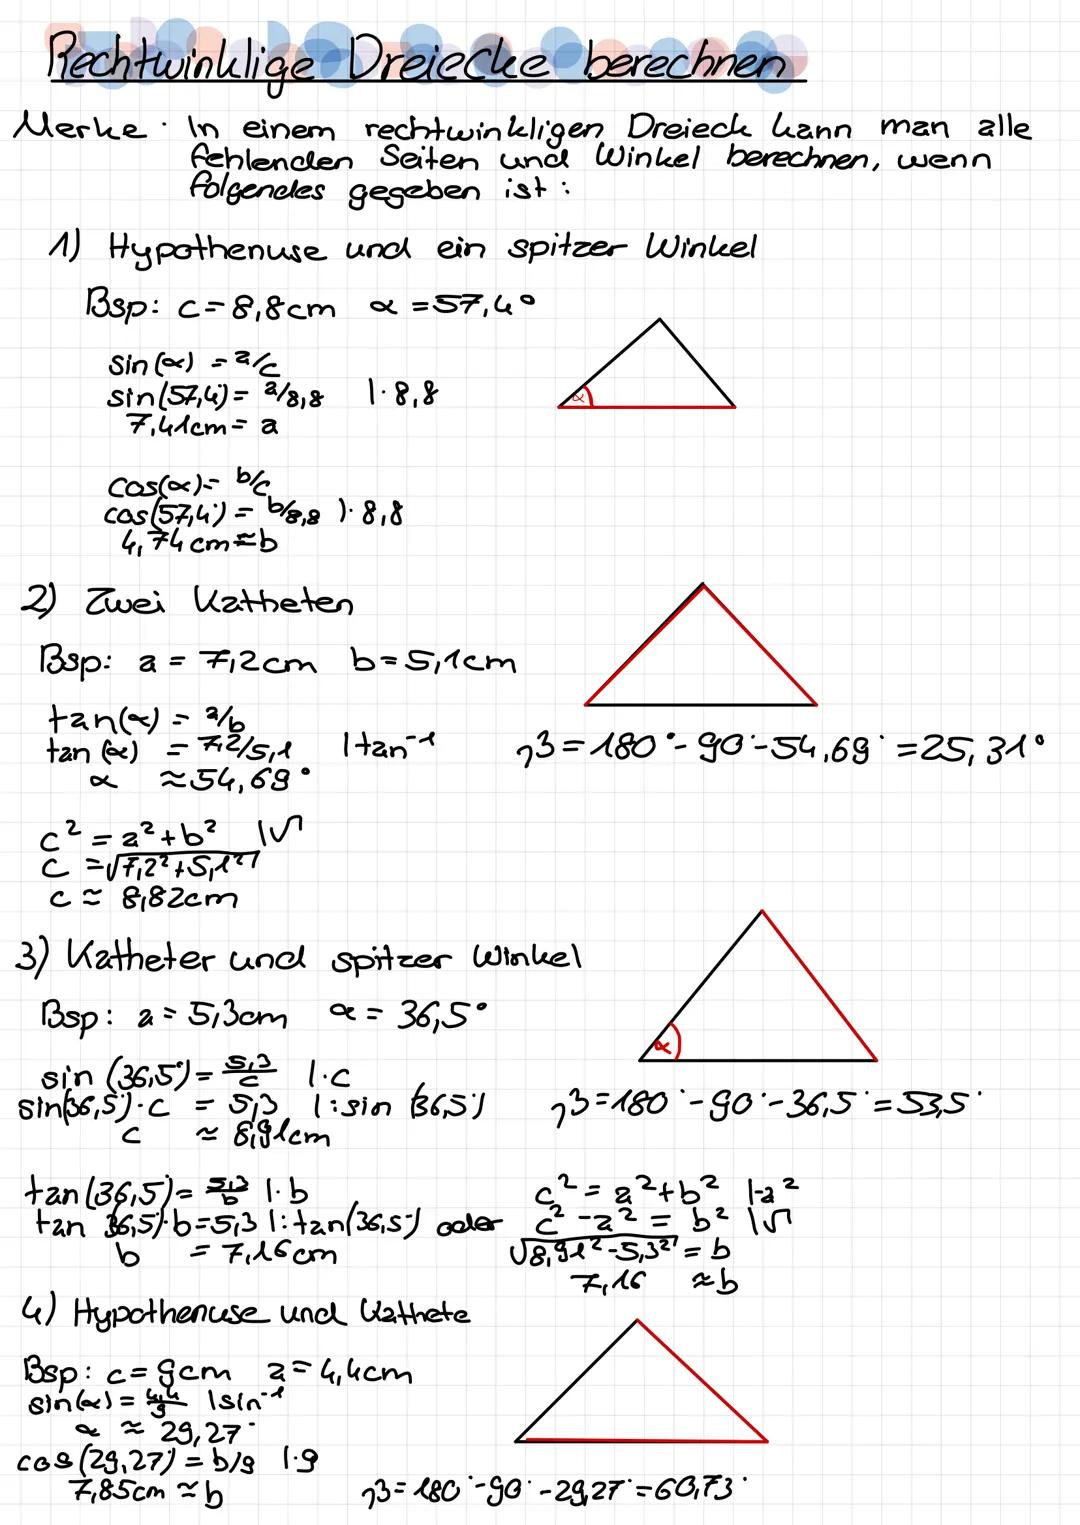 Rechtwinklige Dreiecke berechnen
Merke: In einem rechtwinkligen Dreieck kann man alle
fehlenden Seiten und Winkel berechnen, wenn
folgendes gegeben ist:
1) Hypothenuse und ein spitzer Winkel
Bsp: c = 8,8cm α = 57,4°
sin(α) = a/c
sin(57,4°) = a/8,8 |·8,8
7,41cm = a
α
cos(α) = b/c
cos(57,4°) = b/8,8 |·8,8
4,74cm ≈ b
2) Zwei Katheten
Bsp: a = 7,2cm b = 5,1cm
tan(α) = a/b
tan(α) = 7,2/5,1 |tan⁻¹
α ≈ 54,69°
β = 180° - 90° - 54,69° = 25,31°
c² = a² + b² |√
c = √7,2² + 5,1²
c ≈ 8,82cm
3) Katheter und spitzer Winkel
Bsp: a = 5,3cm α = 36,5°
α
sin(36,5°) = 5,3/c |·c
sin(36,5°)·c = 5,3 |:sin(36,5°)
c ≈ 8,91cm
β = 180° - 90° - 36,5° = 53,5°
tan(36,5°) = 5,3/b |·b
tan 36,5°)·b = 5,3 |:tan(36,5°) oder
b = 7,16cm
c² = a² + b² |-a²
c² - a² = b² |√
√8,91² - 5,3² = b
7,16 ≈ b
4) Hypothenuse und Kathete
Bsp: c = 9cm a = 4,4cm
sin(α) = 4,4/9 |sin⁻¹
α ≈ 29,27°
cos(29,27°) = b/9 |·9
7,85cm ≈ b
β = 180° - 90° - 29,27° = 60,73°